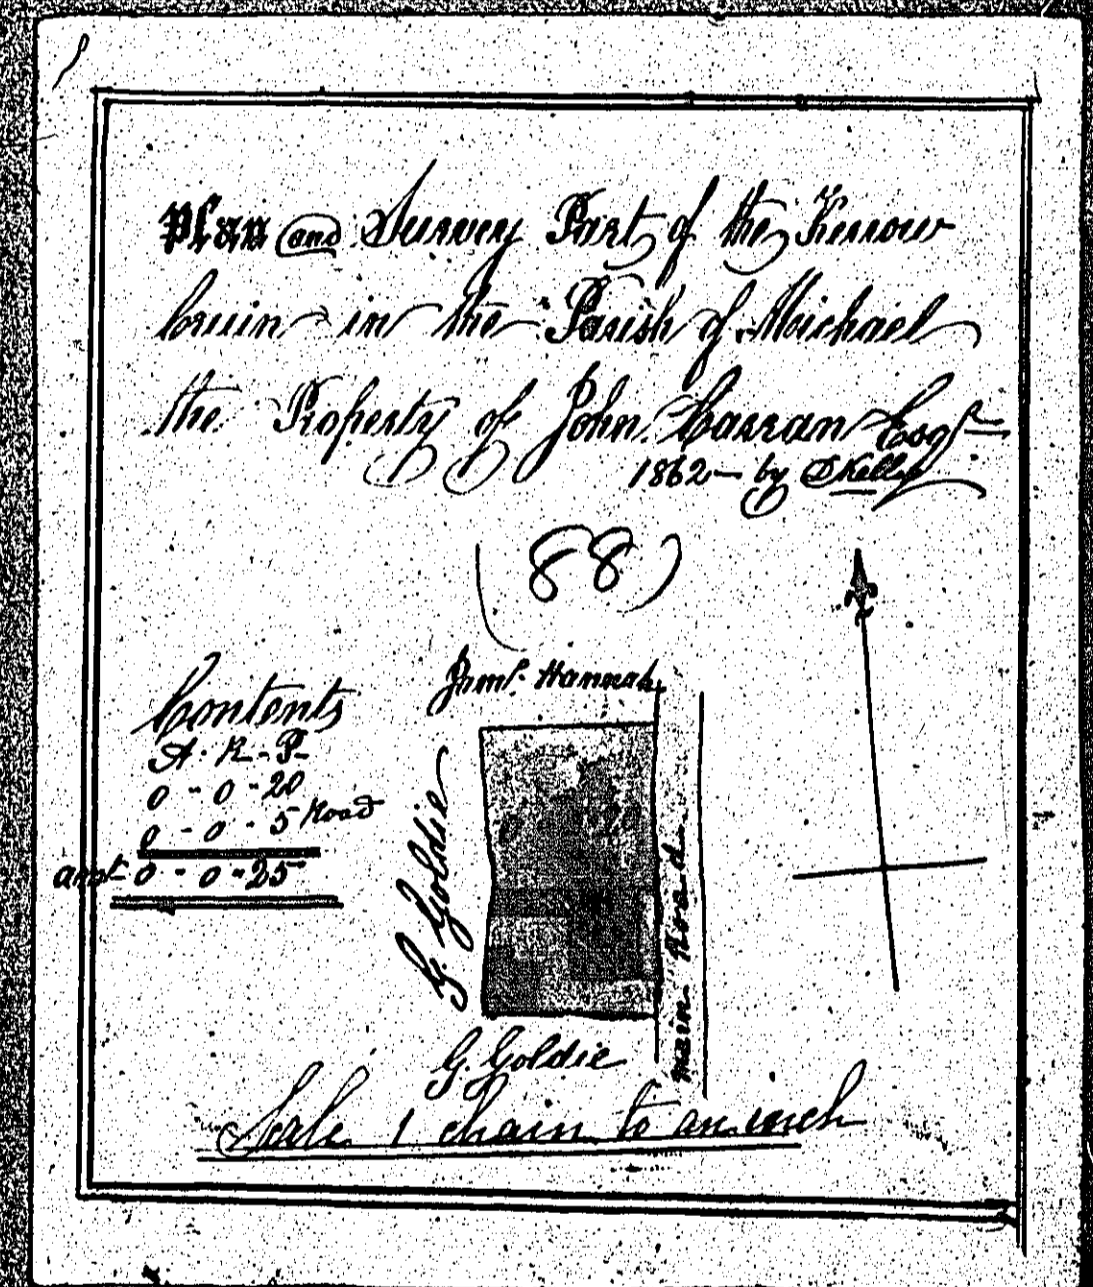 Plan and Survey Part of the Kerrow
bruin in the Parish of Michael
the Property of John Carran Esqr
1862 - by D Kelly
(88)
Contents
A. R - P
0 - 0 - 20
0 - 0 - 5 Road
amt 0 - 0 - 25
Jams. Hannah
G. Goldie
Main Road
G. Goldie
Scale 1 chain to an inch